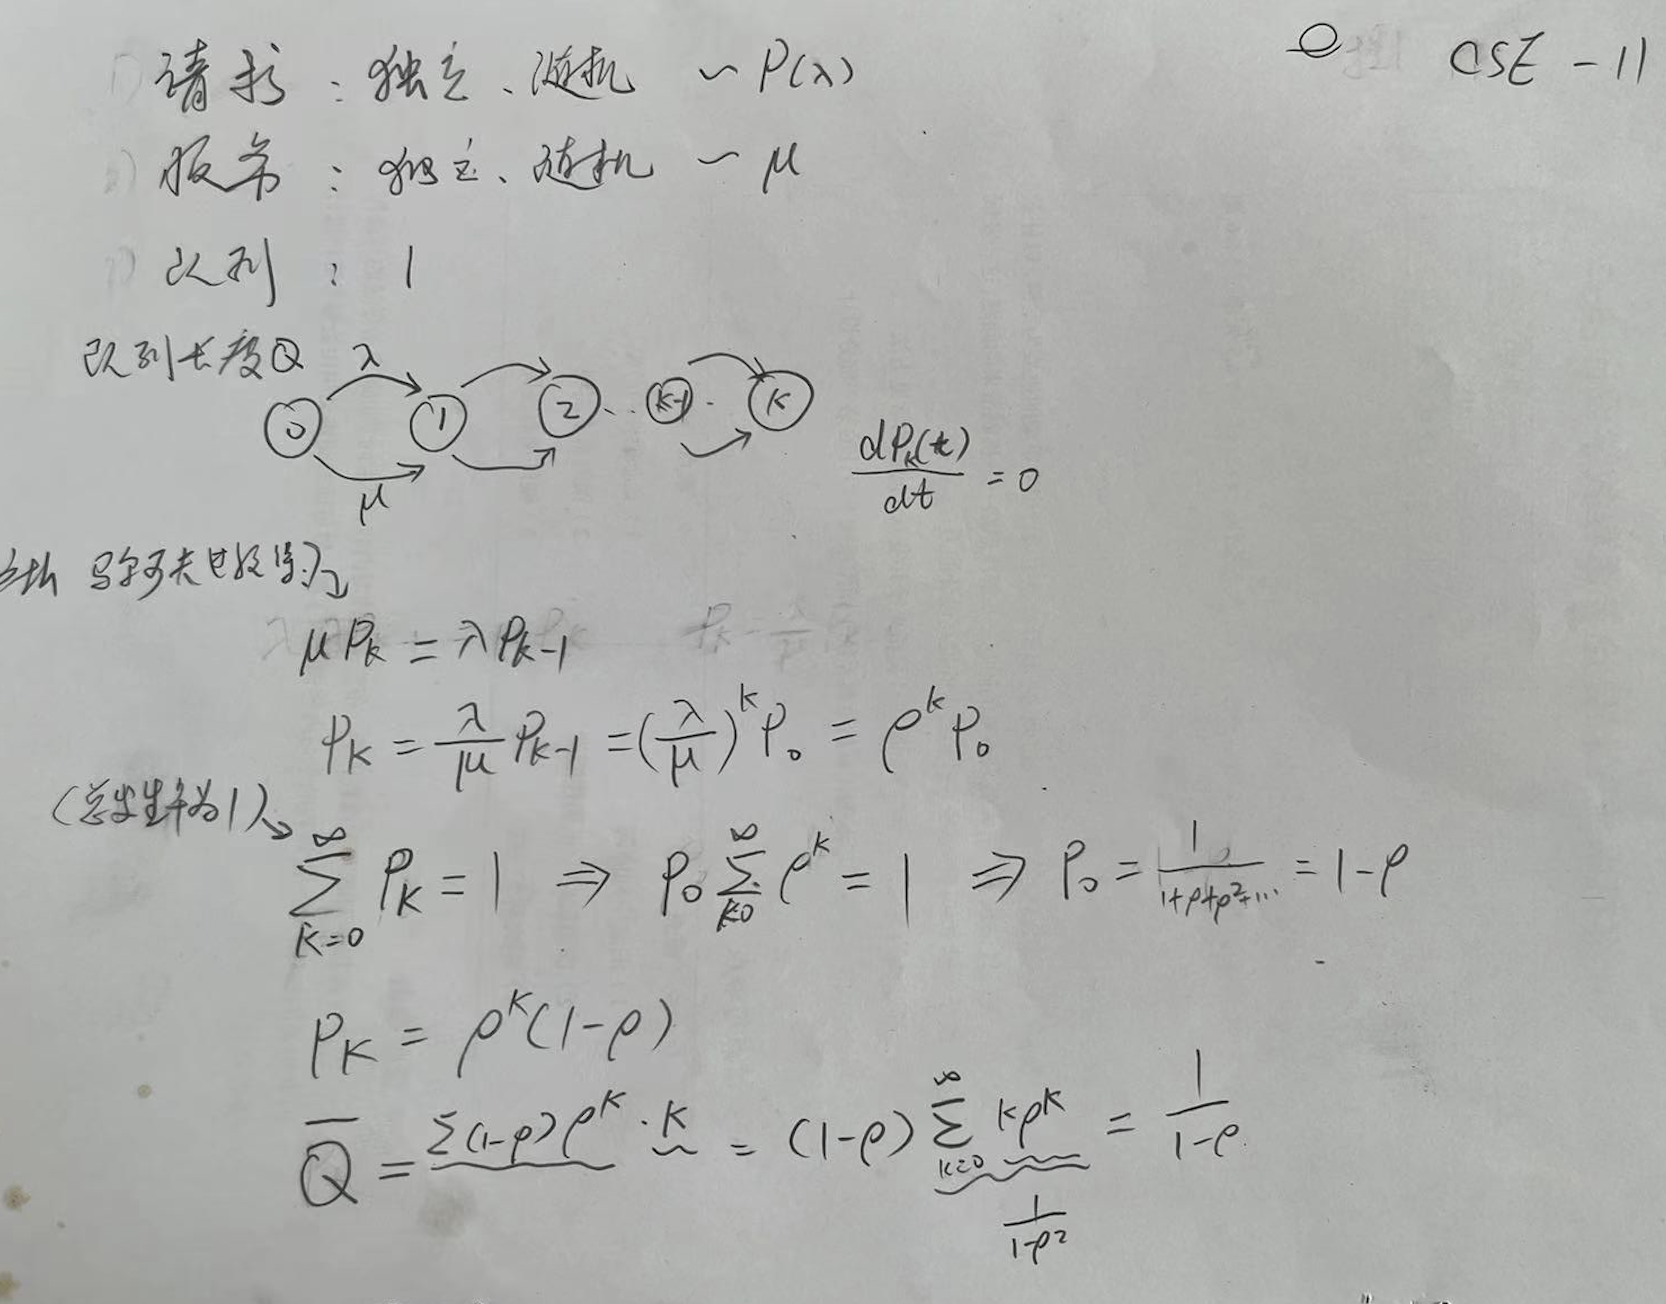 CSE - 11
请求 : 独立、随机 ~ P(λ)
服务 : 独立、随机 ~ μ
队列 : 1
队列长度Q
λ
0 1 2 .. k-1 . k
μ
dPₖ(t)/dt = 0
马尔可夫过程得
μPₖ = λPₖ₋₁
Pₖ = λ/μ Pₖ₋₁ = (λ/μ)ᵏ P₀ = ρᵏ P₀
(总发生率为1)
∑_{k=0}^{∞} Pₖ = 1 ⇒ P₀ ∑_{k=0}^{∞} ρᵏ = 1 ⇒ P₀ = 1/(1+ρ+ρ²+...) = 1-ρ
Pₖ = ρᵏ(1-ρ)
Q̅ = ∑(1-ρ)ρᵏ · k = (1-ρ) ∑_{k=0}^{∞} kρᵏ = 1/(1-ρ)
1/(1-ρ²)